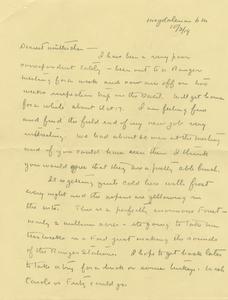 Magdalena N M
10/9/09
Dearest Mother -
I have been a very poor
correspondent lately - been out to a Ranger
Meeting for a week and now am off on two
weeks inspection trip on the Datil. Will get home
for a while about Oct. I am feeling fine
and find the field end of my new job very
interesting. We had about 20 men at the meeting
and if you could have seen them I think
you would agree that they are a pretty able bunch.
It is getting quite cold here with frost
every night and the aspens are yellowing in
the hills. This is a perfectly enormous Forest -
nearly 4 million acres - it's going to take me
two weeks in a Ford just making the rounds
of the Ranger Stations. I hope to get back later
to take a try for a duck or some turkeys. Wish
Carl or Fritz could go.